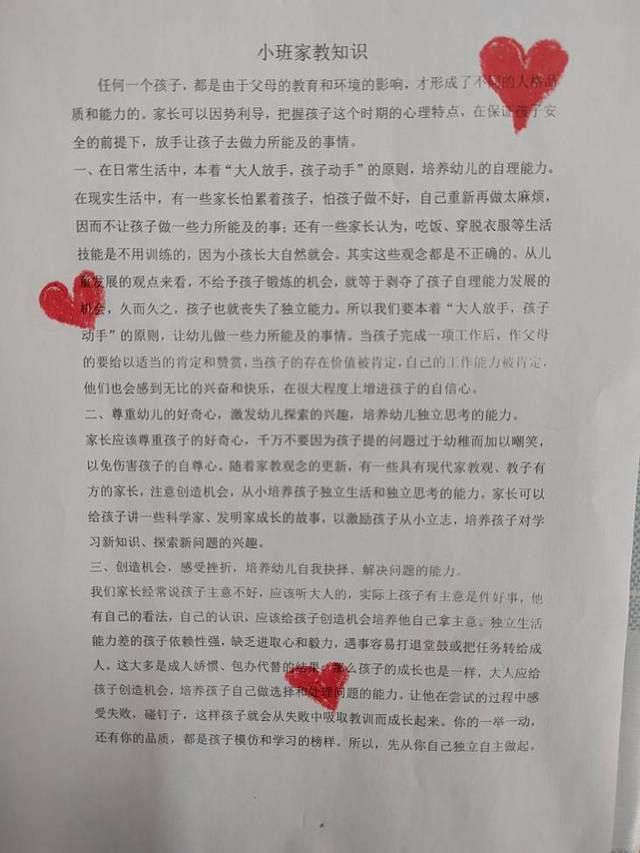 小班家教知识
任何一个孩子，都是由于父母的教育和环境的影响，才形成了不同的人格品
质和能力的。家长可以因势利导，把握孩子这个时期的心理特点，在保证孩子安
全的前提下，放手让孩子去做力所能及的事情。
一、在日常生活中，本着“大人放手，孩子动手”的原则，培养幼儿的自理能力。
在现实生活中，有一些家长怕累着孩子，怕孩子做不好，自己重新再做太麻烦，
因而不让孩子做一些力所能及的事；还有一些家长认为，吃饭、穿脱衣服等生活
技能是不用训练的，因为小孩长大自然就会。其实这些观念都是不正确的。从儿
童发展的观点来看，不给予孩子锻炼的机会，就等于剥夺了孩子自理能力发展的
机会，久而久之，孩子也就丧失了独立能力。所以我们要本着“大人放手，孩子
动手”的原则，让幼儿做一些力所能及的事情。当孩子完成一项工作后，作父母
的要给以适当的肯定和赞赏，当孩子的存在价值被肯定，自己的工作能力被肯定，
他们也会感到无比的兴奋和快乐，在很大程度上增进孩子的自信心。
二、尊重幼儿的好奇心，激发幼儿探索的兴趣，培养幼儿独立思考的能力。
家长应该尊重孩子的好奇心，千万不要因为孩子提的问题过于幼稚而加以嘲笑，
以免伤害孩子的自尊心。随着家教观念的更新，有一些具有现代家教观、教子有
方的家长，注意创造机会，从小培养孩子独立生活和独立思考的能力。家长可以
给孩子讲一些科学家、发明家成长的故事，以激励孩子从小立志，培养孩子对学
习新知识、探索新问题的兴趣。
三、创造机会，感受挫折，培养幼儿自我抉择、解决问题的能力。
我们家长经常说孩子主意不好，应该听大人的，实际上孩子有主意是件好事，他
有自己的看法，自己的认识，应该给孩子创造机会培养他自己拿主意。独立生活
能力差的孩子依赖性强，缺乏进取心和毅力，遇事容易打退堂鼓或把任务转给成
人。这大多是成人娇惯、包办代替的结果。那么孩子的成长也是一样，大人应给
孩子创造机会，培养孩子自己做选择和处理问题的能力。让他在尝试的过程中感
受失败，碰钉子，这样孩子就会从失败中吸取教训而成长起来。你的一举一动，
还有你的品质，都是孩子模仿和学习的榜样。所以，先从你自己独立自主做起。